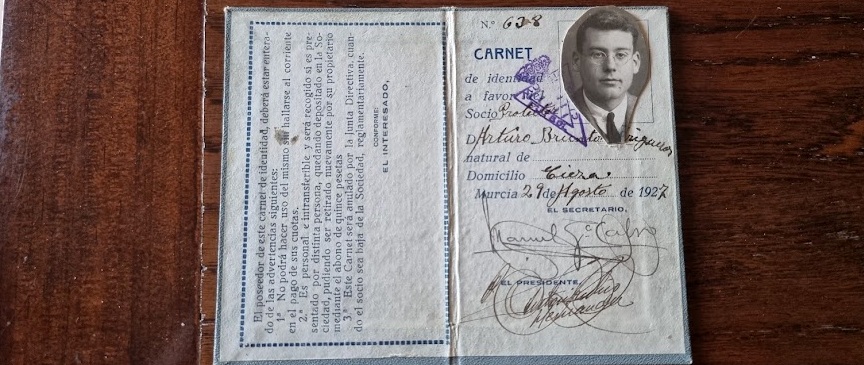 El poseedor de este carnet de identidad, deberá estar entera-
do de las advertencias siguientes:
1.ª No podrá hacer uso del mismo sin hallarse al corriente
en el pago de sus cuotas.
2.ª Es personal e intransferible, y será recogido si es pre-
sentado por distinta persona, quedando depositado en la So-
ciedad, pudiendo ser retirado nuevamente por su propietario
mediante el abono de quince pesetas
3.ª Este Carnet será anulado por la Junta Directiva, cuan-
do el socio sea baja de la Sociedad, reglamentariamente.
CONFORME:
EL INTERESADO,
N.º 638
CARNET
de identidad
a favor del
Socio
D. Arturo
natural de
Domicilio Cieza
Murcia 29 de Agosto de 1927
EL SECRETARIO,
Manuel Gª
EL PRESIDENTE
Hernández